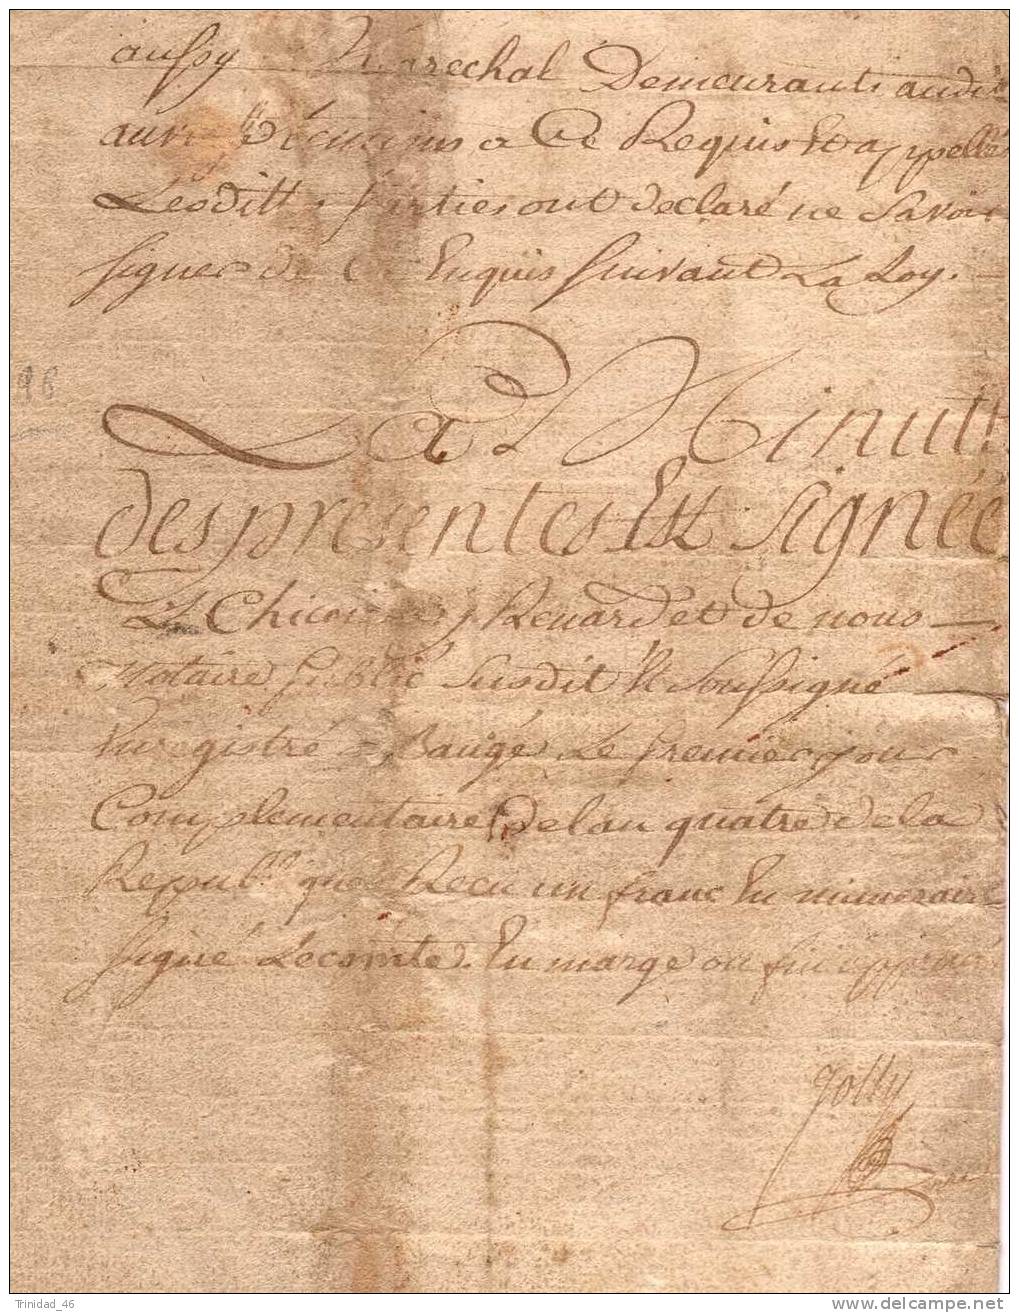 aussy Marechal Demeurants audit
temoins a Ce Requis Et appellés
Lesditt. Parties ont declaré ne Savoir
signer de Ce Enquis suivant La Loy.
96
La Minutte
des presentes Est signée
Renard et de nous
Notaire Public susdit Et Soussigné
Enregistré a Baugé Le premier jour
Complementaire de lan quatre de la
Republ. que Recu un franc En numeraire
signé Lecomte. En marge ou fin
Jolly
Trinidad_46
www.delcampe.net